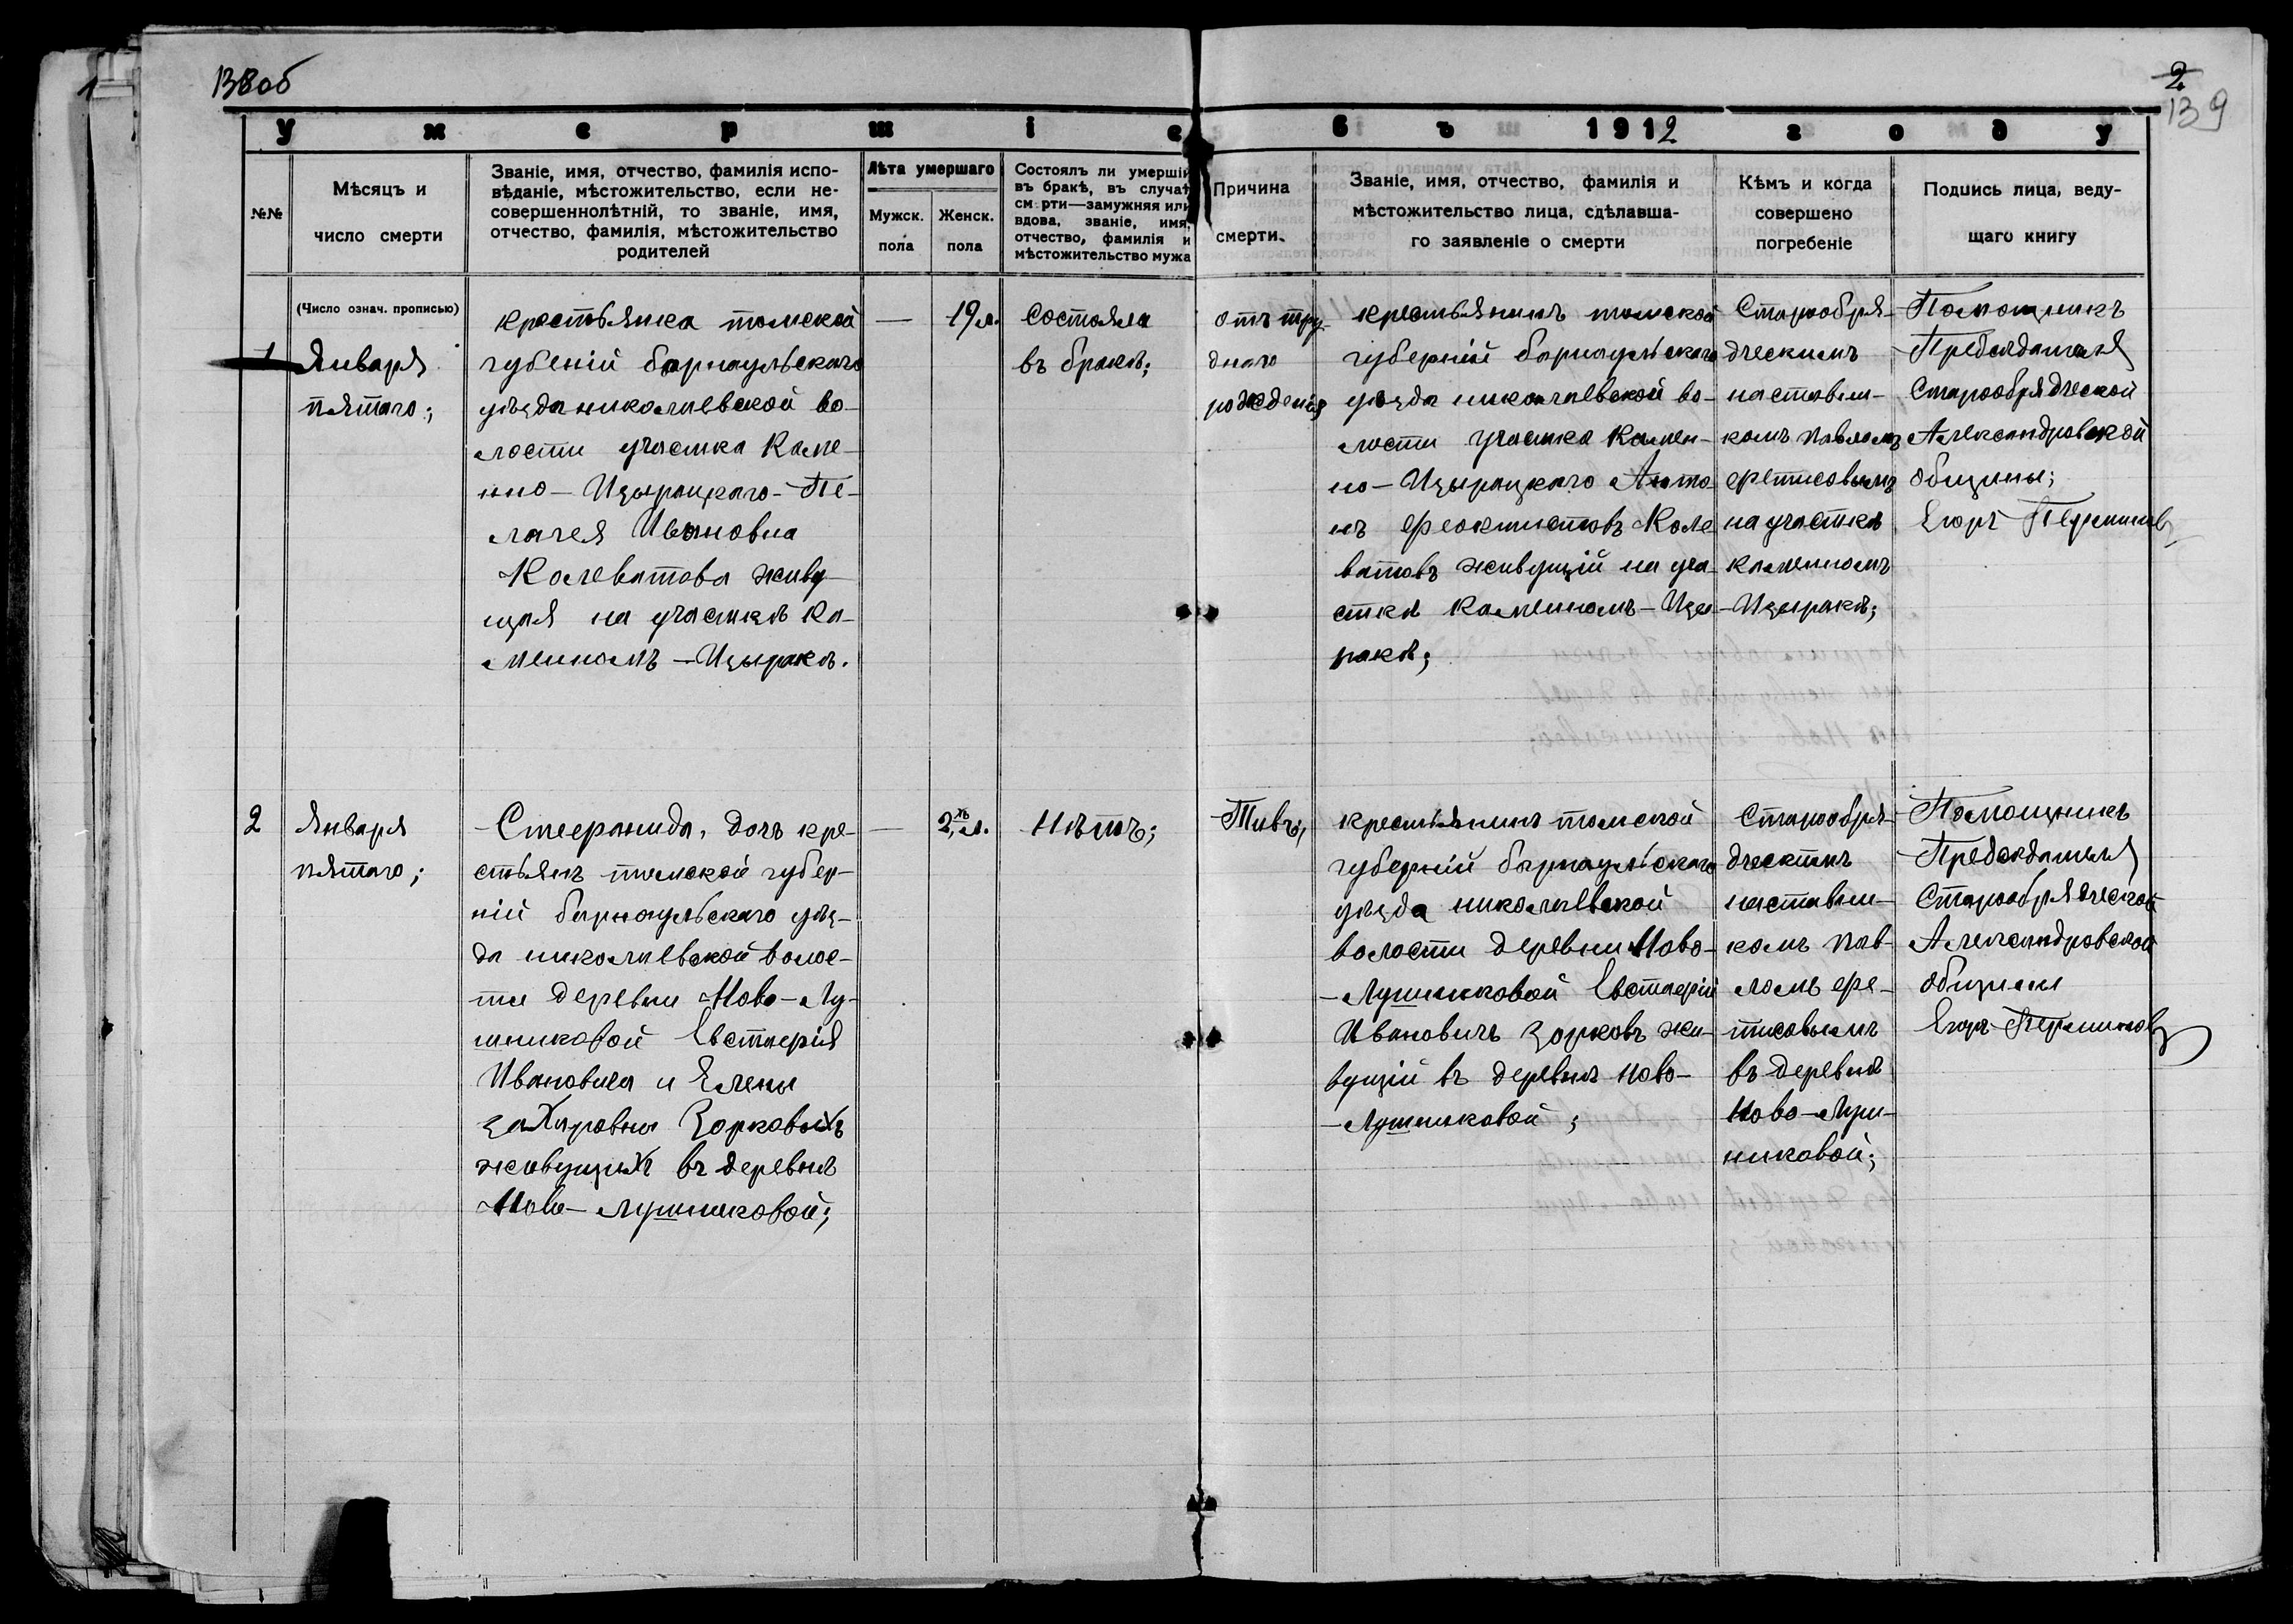 138об
2
139
Умершіе въ 1912 году
№№
Мѣсяцъ и
число смерти
Званіе, имя, отчество, фамилія испо-
вѣданіе, мѣстожительство, если не-
совершеннолѣтній, то званіе, имя,
отчество, фамилія, мѣстожительство
родителей
Лѣта умершаго
Мужск.
пола
Женск.
пола
Состоялъ ли умершій
въ бракѣ, въ случаѣ
см рти—замужняя или
вдова, званіе, имя,
отчество, фамилія и
мѣстожительство мужа
Причина
смерти.
Званіе, имя, отчество, фамилія и
мѣстожительство лица, сдѣлавша-
го заявленіе о смерти
Кѣмъ и когда
совершено
погребеніе
Подпись лица, веду-
щаго книгу
(Число означ. прописью)
1
Января
пятаго;
крестьянка томской
губеній барнаульскаго
уѣзда николаевской во-
лости участка Каме-
нно-Изыракскаго-Пе-
лагея Ивановна
Колеватова живу-
щая на участкѣ Ка-
менномъ-Изыракѣ.
—
19 л.
Состояла
въ бракѣ;
отъ тру-
днаго
рожденія
крестьянинъ томской
губерній барнаульскаго
уѣзда николаевской во-
лости участка Камен-
но-Изыракскаго Анто-
нъ Феоктистовъ Коле-
ватовъ живущій на уча-
сткѣ Каменномъ-Изы-
ракѣ;
Старообря-
дческимъ
наставни-
комъ Павломъ
Фетисовымъ
на участкѣ
каменномъ
-Изыракѣ;
Помощникъ
Предсѣдателя
Старообрядческой
Александровской
общины;
Егоръ Перминовъ
2
Января
пятаго;
Стефанида, дочь кре-
стьянъ томской губер-
ній барнаульскаго уѣз-
да николаевской волос-
ти деревни Ново-Лу-
шниковой Евстафія
Ивановича и Елены
Захаровны Зорковыхъ
живущихъ въ деревнѣ
Ново-Лушниковой;
—
2хъ л.
Нѣтъ;
Тивъ;
крестьянинъ томской
губерній барнаульскаго
уѣзда николаевской
волости деревни Ново-
-Лушниковой Евстафій
Ивановичъ Зорковъ жи-
вущій въ деревнѣ Ново-
-Лушниковой;
Старообря-
дческимъ
наставни-
комъ Пав-
ломъ Фе-
тисовымъ
въ деревнѣ
Ново-Луш-
никовой;
Помощникъ
Предсѣдателя
Старообрядческой
Александровской
общины
Егоръ Перминовъ